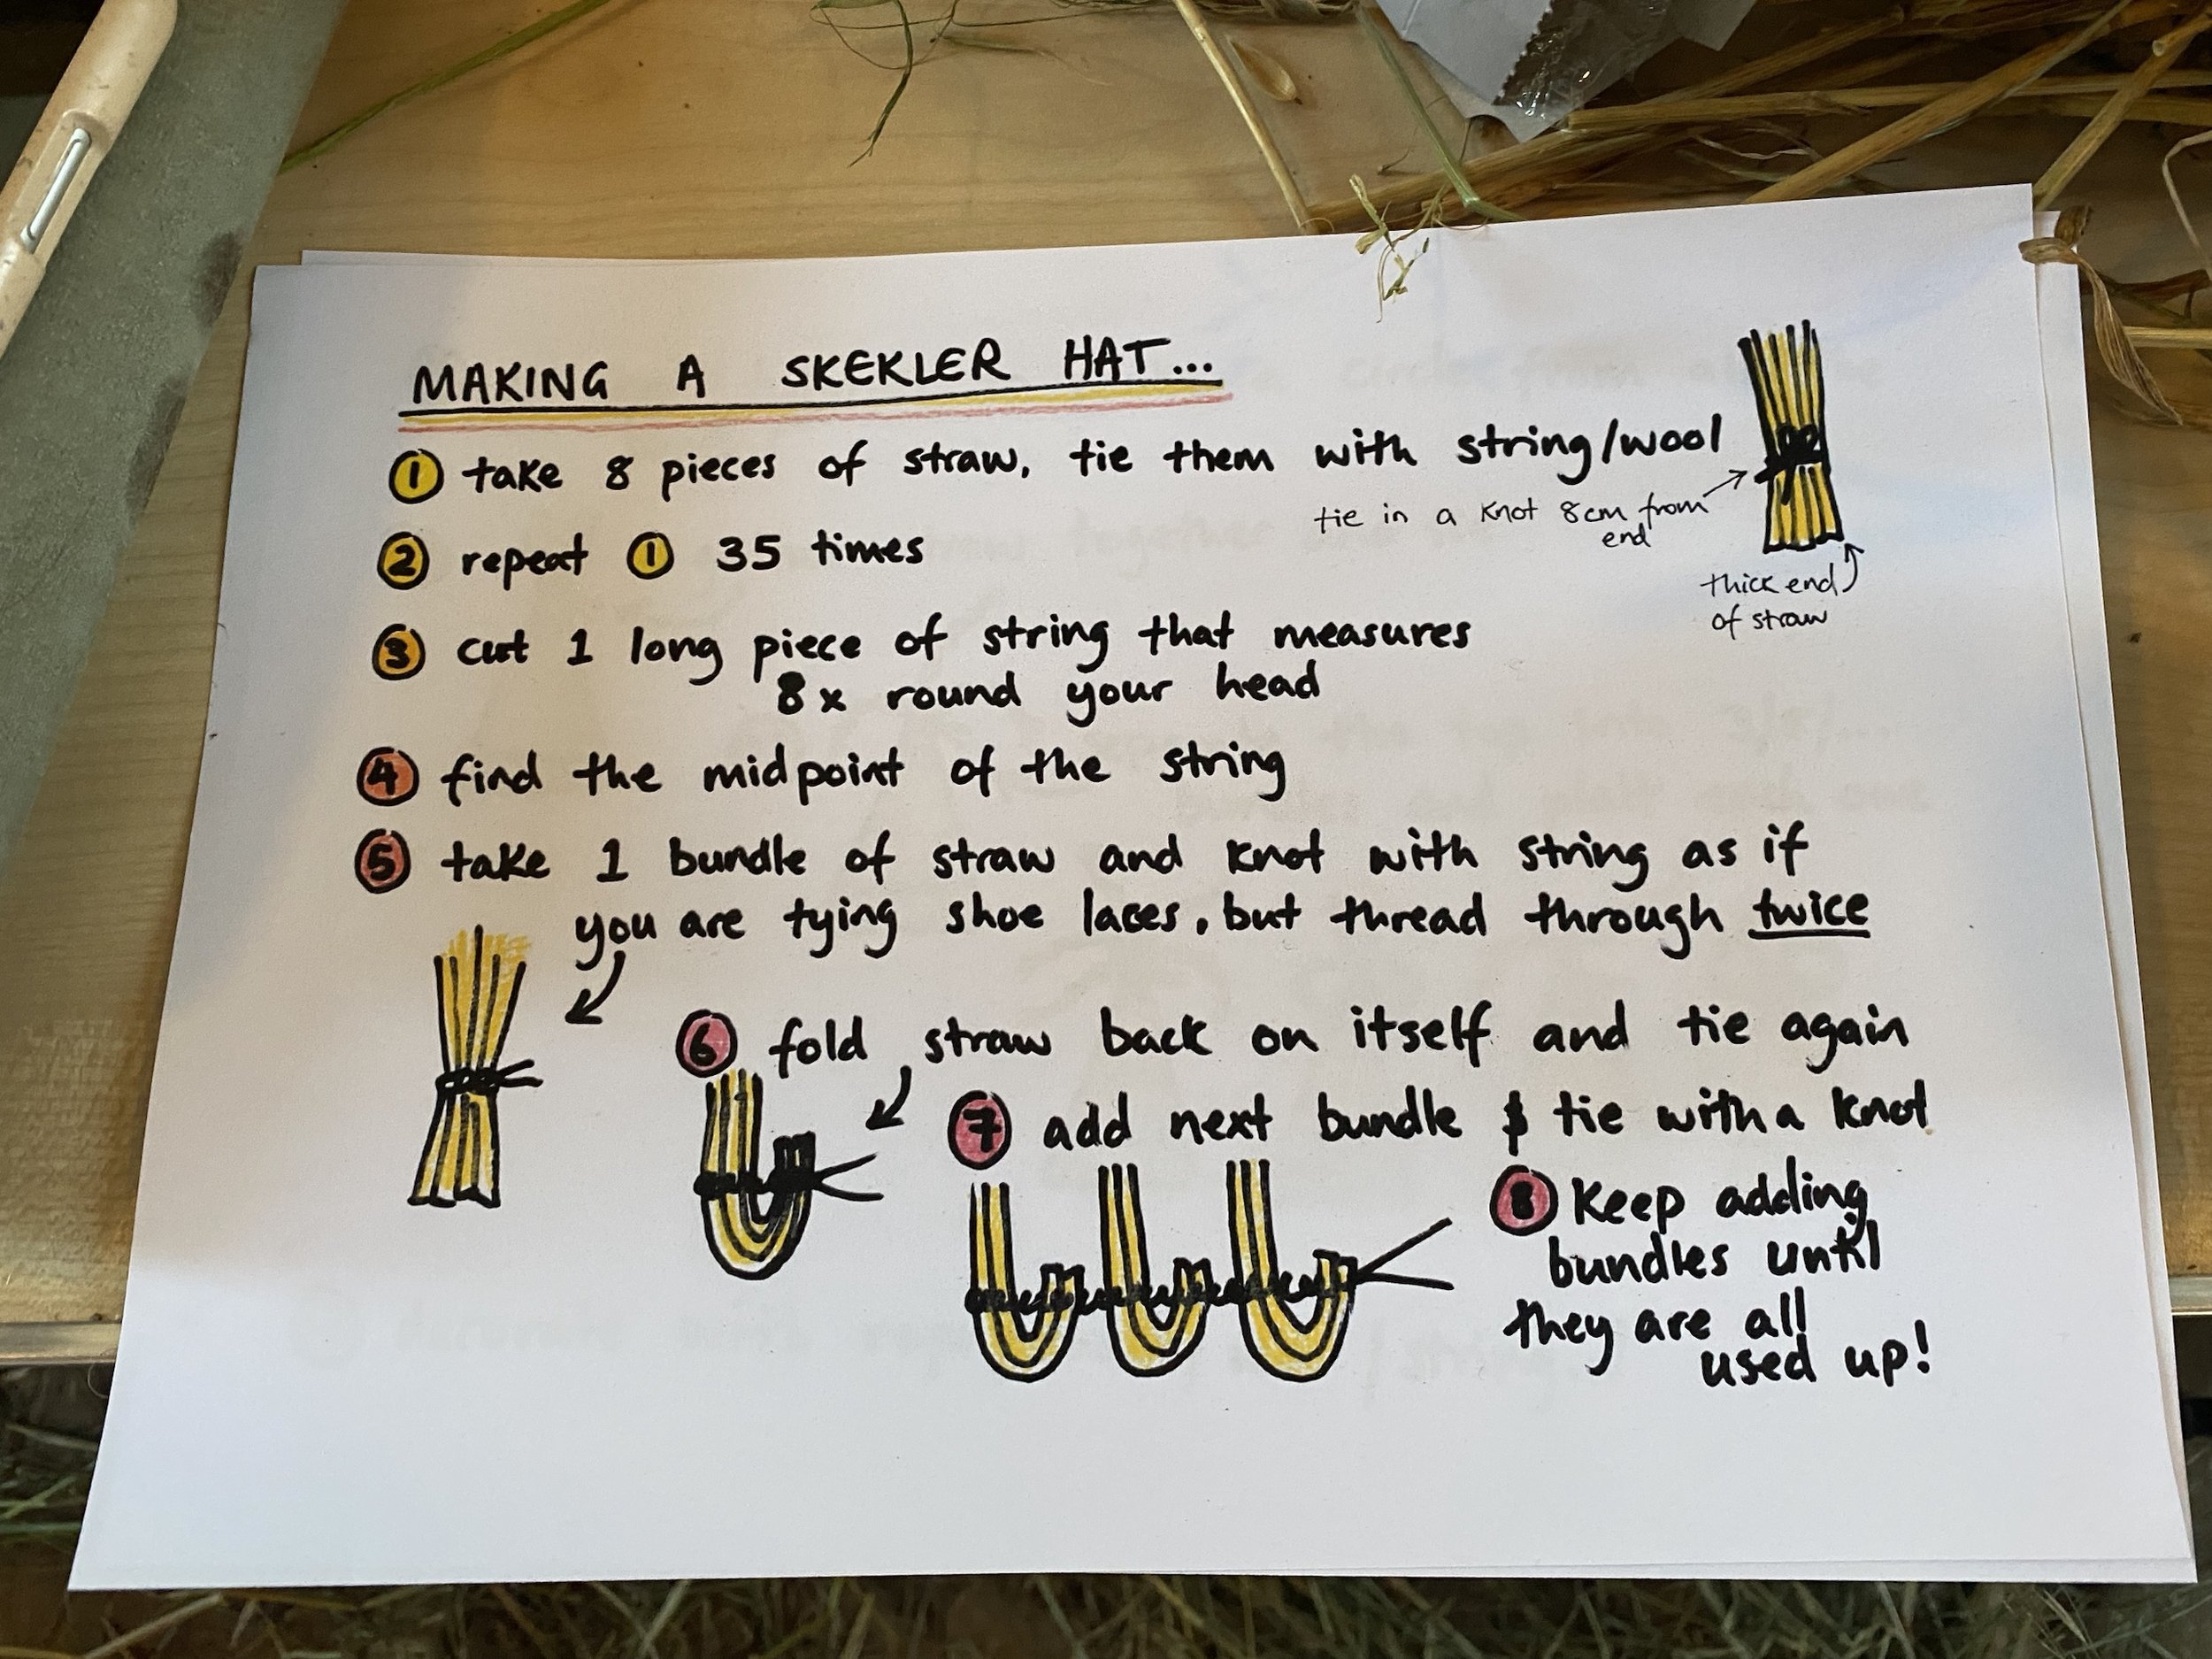 MAKING A SKEKLER HAT...
① take 8 pieces of straw, tie them with string/wool
tie in a knot 8cm from
end
thick end
of straw
② repeat ① 35 times
③ cut 1 long piece of string that measures
8x round your head
④ find the midpoint of the string
⑤ take 1 bundle of straw and knot with string as if
you are tying shoe laces, but thread through twice
⑥ fold straw back on itself and tie again
⑦ add next bundle & tie with a knot
⑧ Keep adding
bundles until
they are all
used up!